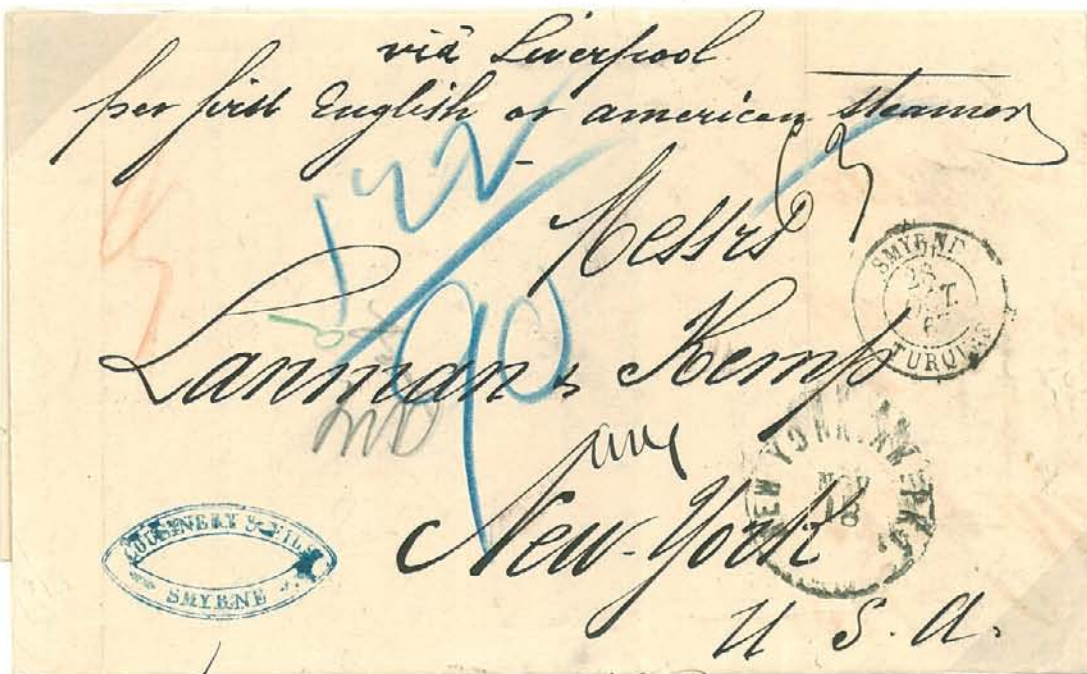 viâ Liverpool
per first English or american steamer
122
90
Messrs
Lanman & Kemp
New-York
U. S. A.
SMYRNE
28
OCT.
6
TURQUIE
NEW YORK
NOV
18
COUSINERY & FILS
SMYRNE